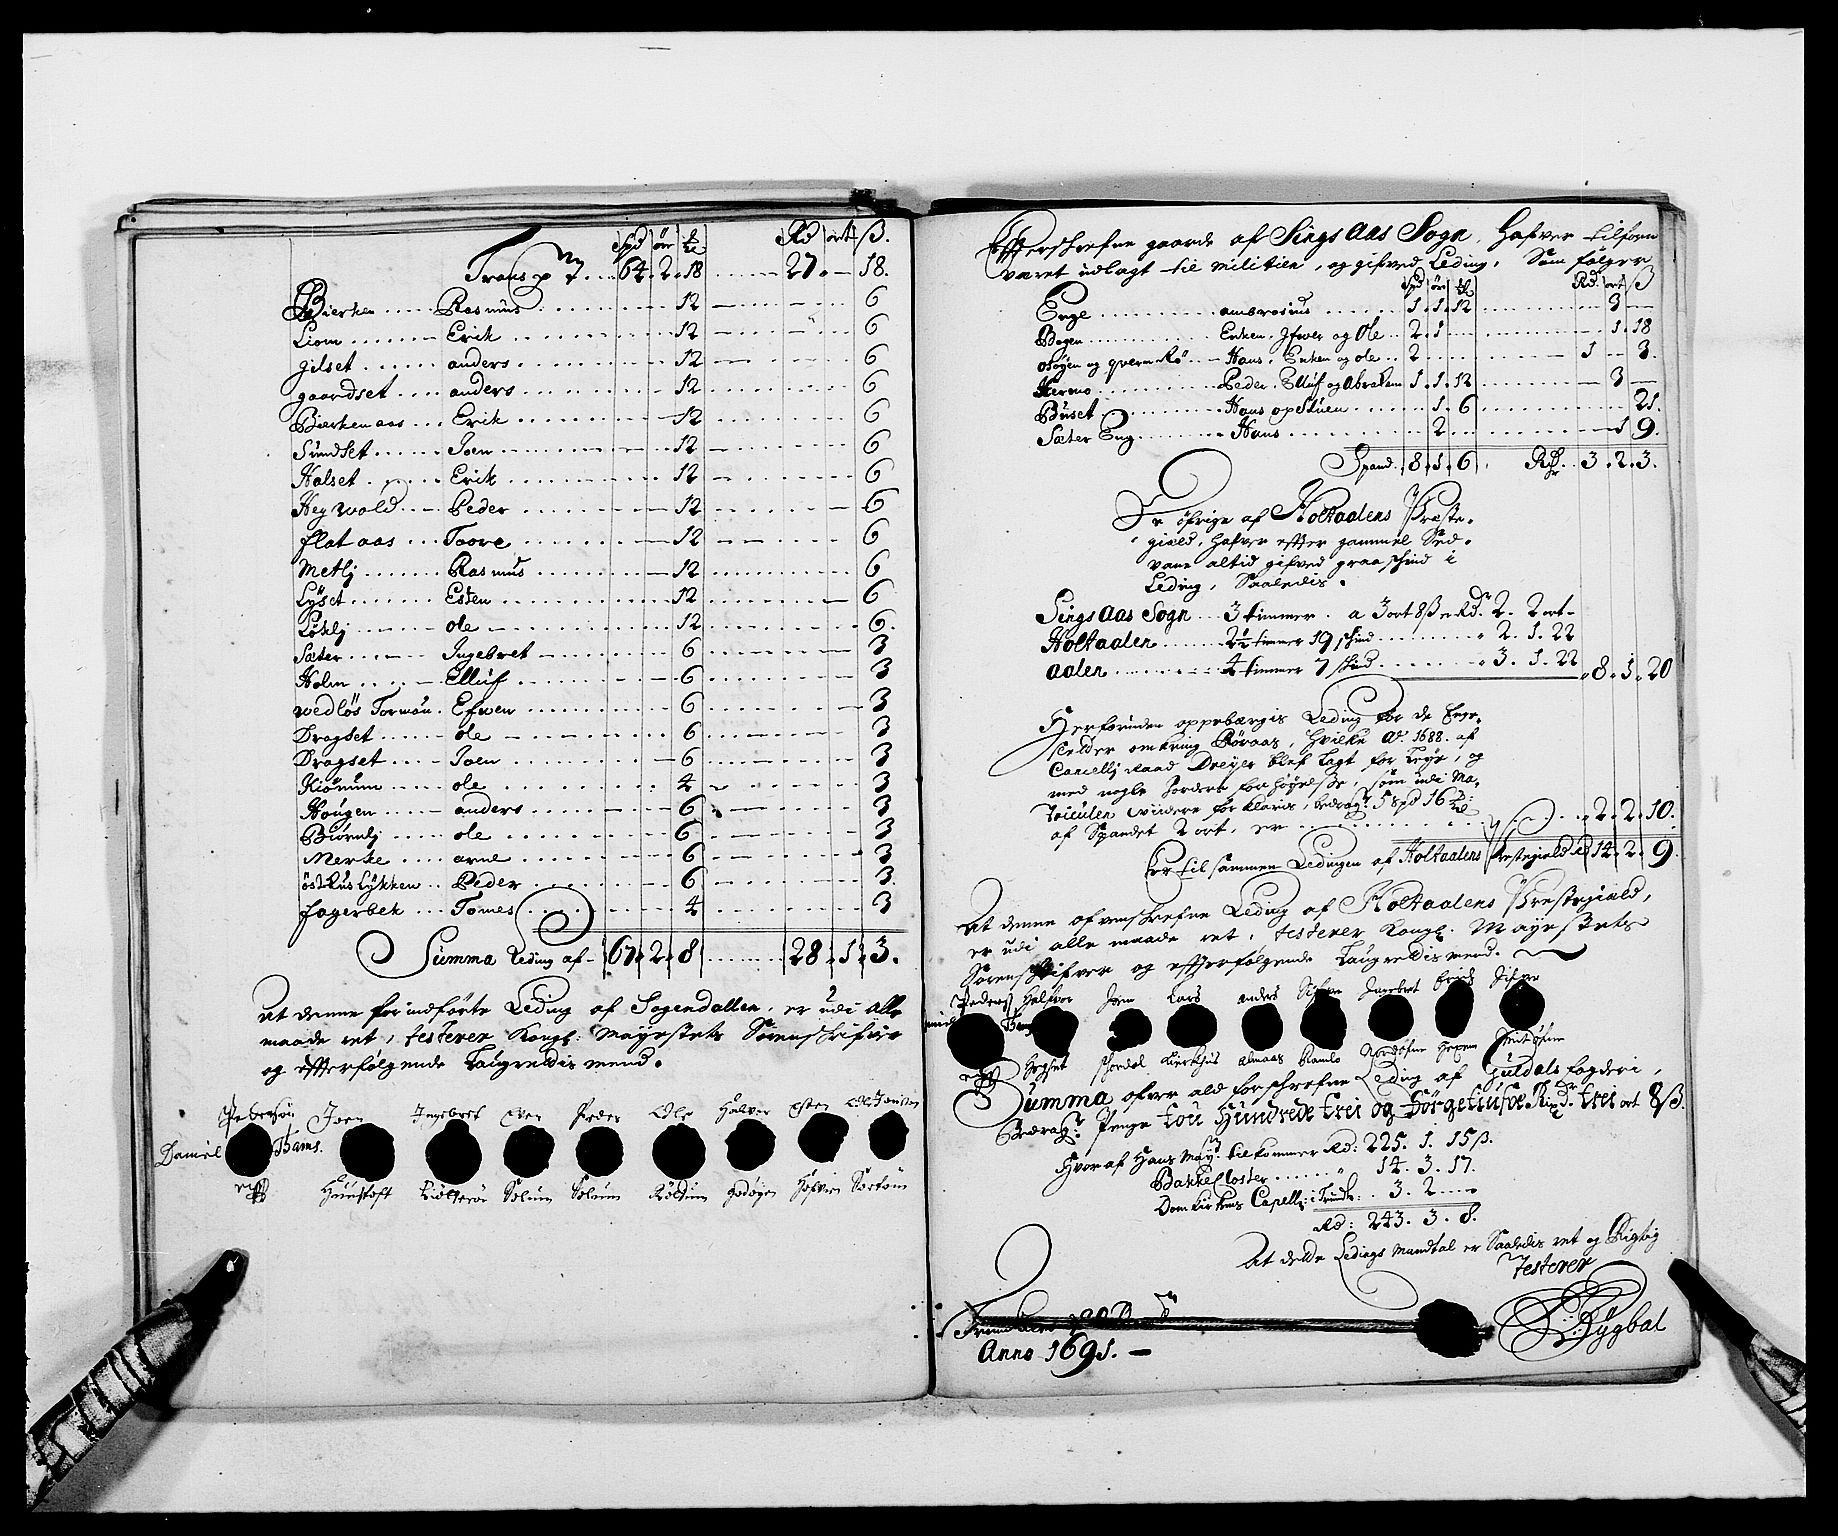 Spd ört mk Rd ort ß.
Transp. 64. 2. 18 27. — 18.
Bierken Rasmus 12 6
Liom Erik 12 6
gilset anders 12 6
gaardset anders 12 6
Bierkenaas Erik 12 6
Sundset Joen 12 6
Halset Erik 12 6
Hegwold Peder 12 6
flataas Toore 12 6
Metlj Rasmus 12 6
Lÿset Esten 12 6
Løklj ole 12 6.
Sæter Ingebret 6 3
Holm Elluf 6 3
wedløs Tormou. Efwen 6 3
Dragset ole 6 3
Dragset Joen 6 3
Kiönum ole 4 3
Hougen anders 6 3
Biörnlj ole 6 3
Merke arne 6 3
östhus Lykken Peder 6 3.
fagerbek Tomes 4 3
Summa Leding af 67. 2. 8 28. 1. 3.
At denne forindförte Leding af Sogendallen, er udi alle
maade ret, testerer Kongl: Mayestets Sorenskrifver
og efterfølgende Laugrettismend.
Pedersøn Joen Ingebret Even Peder Ole Halvor Esten Ole Joensen
Daniel Bams.
Solum Solum Sortom
Effterskrefne gaarde af SingsAas Sogn, Hafver tilforn
været udlagt til militien, og gifved Leding, Som følger
Spd ört mk Rd. ort ß
Enge ambrosius 1. 1. 12 3 —
Bogen Enken, Ifwer og Ole 2. 1 1. 18
osøyen og qvernRö Hans, Enken og ole 2 1 — 3.
Hermo Peder, Elluf og Abraham 1. 1. 12 — 3 —
Büset Hans opStuen 1. 6 21.
Sæter Eng Hans 2 1 9.
Spand. 8. 1. 6. Rdr. 3. 2. 3.
De øfrige af Holtaalens Præste-
gield, hafver efter gammel Sed-
vane altid gifved graaskind i
Leding, Saaledis.
SingsAas Sogn 3 timmer a 3 ort 8 ß er Rd. 2. 2 ort
Holtaalen 2½ timmer 19 skind 2. 1. 22
Aalen 4 timmer 7 skind 3. 1. 22 8. 1. 20
Herforuden oppebærgis Leding for de Enge-
sletter omkring Röraas, hvilke Ao. 1688. af
Cancellj Raad Dreyer blef Lagt for Leye, og
med nogle forhøyelse, som udi Ma-
triculen viidere forklaris, bedrag. 5 spd 16 mk
af Spandet 2 ort, er 2. 2. 10.
Er tilsammen Ledingen af Holtaalens Prestegield Rd 14. 2. 9.
At denne ofvenskrefne Leding af Holtaalens Prestegield,
er udi alle maade ret, testerer Kongl. Mayestets
Sorenskrifver og effterfølgende Laugrettismend.
Peders: Halfvor Joen Lars anders Sifver Ingebret Erich
Daniel Bams
Hegset almaas Ramlo
Summa ofver ald forskrefne Leding af Guldals fogderi,
Bedrag. Penge tou Hundrede trei og førgetiufve Rixdr. trei ort 8 ß.
Hvoraf Hans May. tilkommer Rd: 225. 1. 15 ß.
Bakkecloster 14. 3. 17.
DomKirkens Capell: i Trundh: 3. 2 —
Rd: 243. 3. 8.
At dette Ledings Mandtal er Saaledis ret og Rigtig
testerer
Anno 1691. —
Bÿgbal